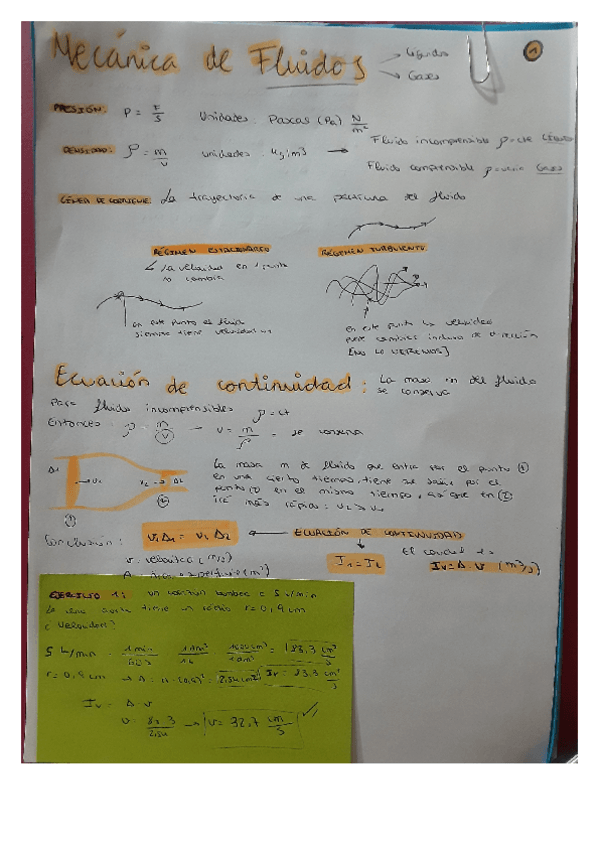 Mecánica de Fluidos
Líquidos
Gases
1
PRESIÓN: P = F/S Unidades: Pascas (Pa) N/m²
DENSIDAD: ρ = m/v unidades: kg/m³ → Fluido incomprensible ρ=cte LÍQUIDO
Fluido comprensible GASES
LÍNEA DE CORRIENTE: La trayectoria de una partícula del fluido
RÉGIMEN ESTACIONARIO
RÉGIMEN TURBULENTO
La velocidad en 1 punto
no cambia
en este punto el fluido
siempre tiene velocidad
en este punto la velocidad
puede cambiar incluso de dirección
[NO LO VEREMOS]
Ecuación de continuidad: La masa m del fluido
se conserva
Para fluido incomprensibles ρ = ct
Entonces ρ = m/v → v = m/ρ = se conserva
La masa m de fluido que entra por el punto ①
en un cierto tiempo, tiene que salir por el
punto ② en el mismo tiempo, así que en ②
irá más rápido: v₂ > v₁
A₁ → v₁ v₂ → A₂
① ②
Conclusión: v₁A₁ = v₂A₂ ← ECUACIÓN DE CONTINUIDAD
v: velocidad (m/s)
I₁ = I₂
El caudal es
Iv = A · v (m³/s)
A = área o superficie (m²)
EJERCICIO 1: un corazón bombea a 5 L/min
La arteria aorta tiene un radio r = 0,9 cm
¿Velocidad?
5 L/min · 1 min/60 s · 1 dm³/1 L · 1000 cm³/1 dm³ = 83,3 cm³/s
r = 0,9 cm → A = π · (0,9)² = 2,54 cm² Iv = 83,3 cm³/s
Iv = A · v
v = 83,3/2,54 → v = 32,7 cm/s